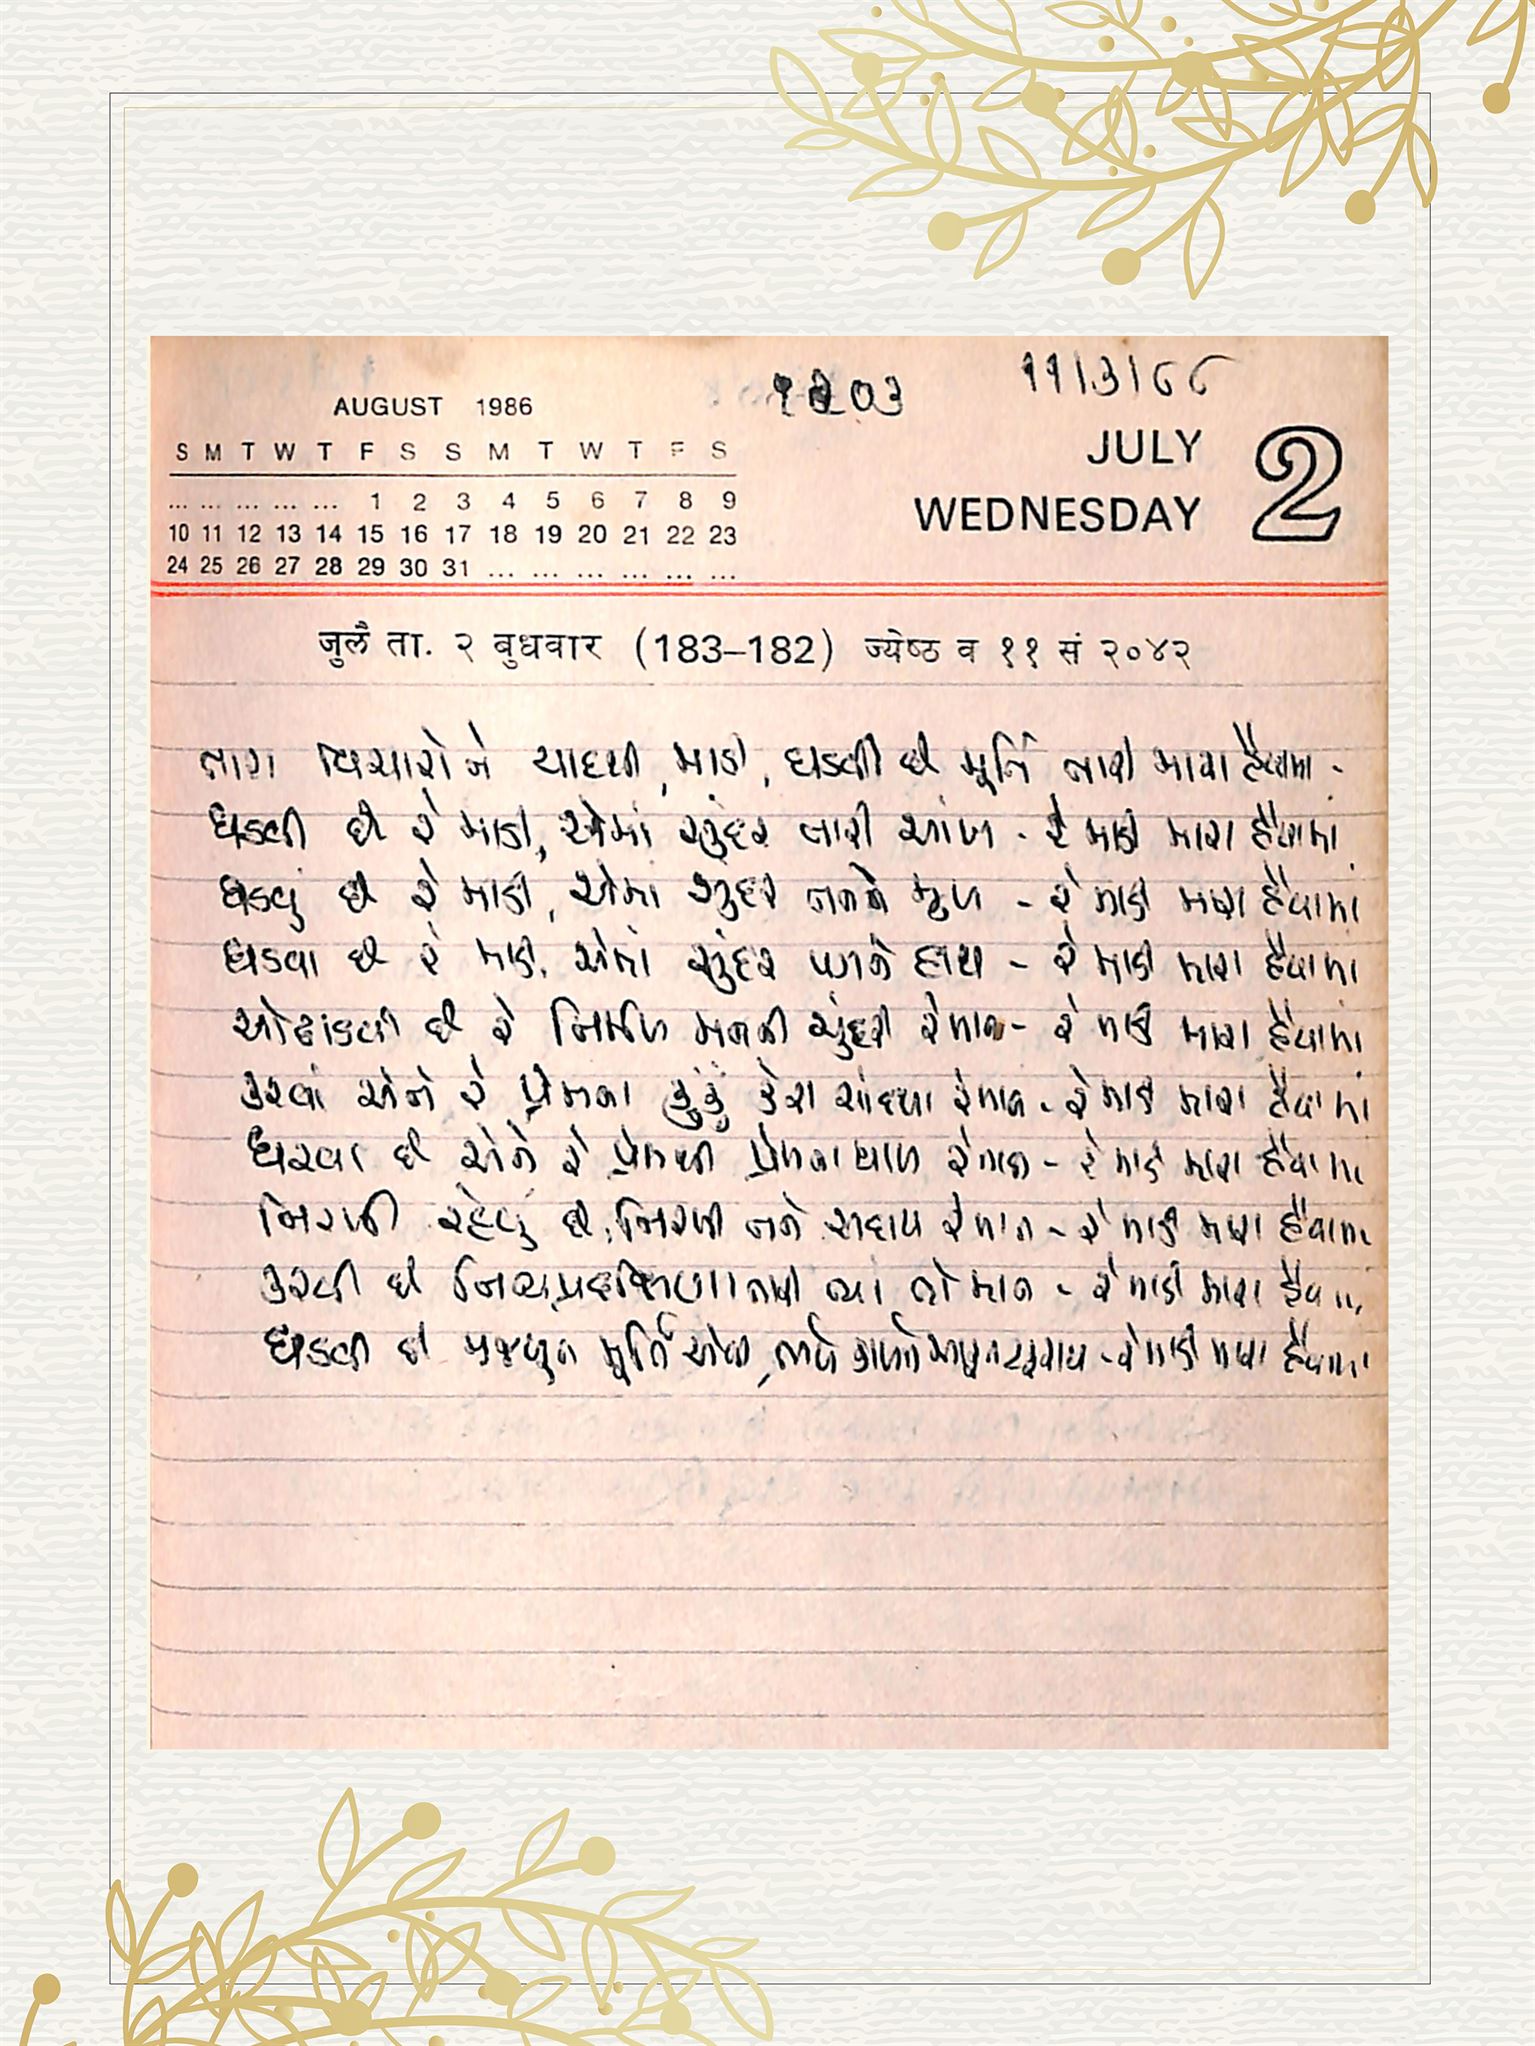 ૧૨૦૩ ૧૧|૩|૮૮
AUGUST 1986
JULY 2
WEDNESDAY
S M T W T F S S M T W T F S
... ... ... ... ... 1 2 3 4 5 6 7 8 9
10 11 12 13 14 15 16 17 18 19 20 21 22 23
24 25 26 27 28 29 30 31 ... ... ... ... ... ...
जुलै ता. २ बुधवार (183–182) ज्येष्ठ व ११ सं २०४२
તારા વિચારોને યાદથી, માડી, ઘડવી છે મૂર્તિ તારી મારા હૈયામાં -
ઘડવી છે રે માડી, એમાં સુંદર તારી આંખ - રે માડી મારા હૈયામાં
ઘડવું છે રે માડી, એમાં સુંદર મુખ - રે માડી મારા હૈયામાં
ઘડવા છે રે માડી, એમાં સુંદર પગને હાથ - રે માડી મારા હૈયામાં
ઓઢાડવી છે રે નિર્મળ મનની ચુંદરી રે માત - રે માડી મારા હૈયામાં
કરવાં એને રે પ્રેમના કુંકું કેરા ચાંદલા રે માત - રે માડી મારા હૈયામાં
ધરવા છે એને રે પ્રેમથી પ્રેમના થાળ રે માત - રે માડી મારા હૈયામાં
નિરખી રહેવું છે, નિરખી તને સદાય રે માત - રે માડી મારા હૈયામાં
કરવી છે નિત્ય પ્રદક્ષિણા તારી ત્યાં તો માત - રે માડી મારા હૈયામાં
ઘડવી છે મજબૂત મૂર્તિ એવી, - રે માડી મારા હૈયામાં